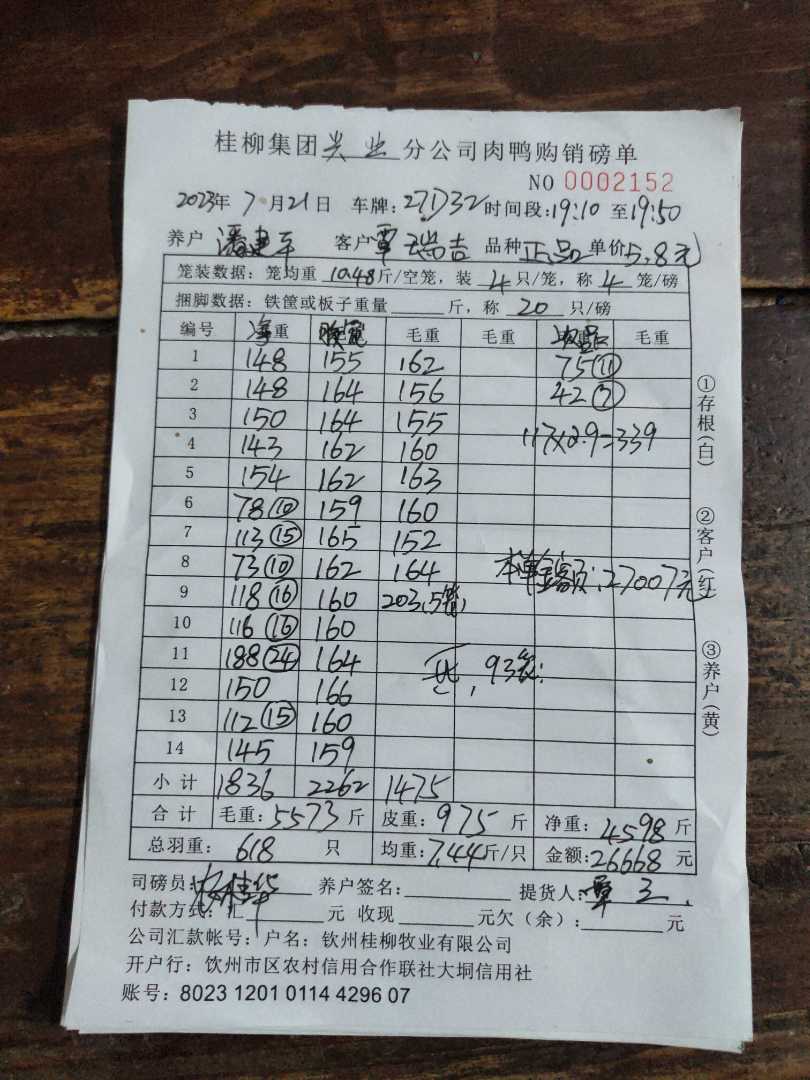 桂柳集团 兴业 分公司肉鸭购销磅单
NO 0002152
2023年 7月21日 车牌: 271732 时间段: 19:10 至 19:50
养户 潘建平 客户 覃瑞吉 品种 正品 单价 5.8元
笼装数据: 笼均重 10.48 斤/空笼, 装 4 只/笼, 称 4 笼/磅
捆脚数据: 铁筐或板子重量 斤, 称 20 只/磅
编号 净重 毛重 毛重 毛重
1 148 155 162 75⑪
2 148 164 156 42⑦
3 150 164 155 117×2.9=339
4 143 162 160
5 154 162 163
6 78⑩ 159 160
7 113⑮ 165 152
8 73⑩ 162 164 本单金额:27007元
9 118⑯ 160 203(5笼)
10 116⑯ 160
11 188㉔ 164 93笼
12 150 166
13 112⑮ 160
14 145 159
小计 1836 2262 1475
合计 毛重: 5573 斤 皮重: 975 斤 净重: 4598 斤
总羽重: 618 只 均重: 7.44斤/只 金额: 26668 元
司磅员: 养户签名: 提货人: 覃
付款方式: 汇 元 收现 元欠(余): 元
公司汇款帐号: 户名: 钦州桂柳牧业有限公司
开户行: 饮州市区农村信用合作联社大垌信用社
账号: 8023 1201 0114 4296 07
①存根(白)
②客户(红)
③养户(黄)